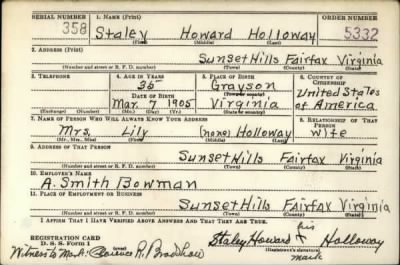 SERIAL NUMBER 1. NAME (Print) ORDER NUMBER
358 Staley Howard Holloway 5332
(First) (Middle) (Last)
2. ADDRESS (Print)
Sunset Hills Fairfax Virginia
(Number and street or R. F. D. number) (Town) (County) (State)
3. TELEPHONE 4. AGE IN YEARS 5. PLACE OF BIRTH 6. COUNTRY OF CITIZENSHIP
35 Grayson United States of America
DATE OF BIRTH (Town or county)
Mar. 7 1905 Virginia
(Exchange) (Number) (Mo.) (Day) (Yr.) (State or country)
7. NAME OF PERSON WHO WILL ALWAYS KNOW YOUR ADDRESS 8. RELATIONSHIP OF THAT PERSON
Mrs. Lily (none) Holloway Wife
(Mr., Mrs., Miss) (First) (Middle) (Last)
9. ADDRESS OF THAT PERSON
Sunset Hills Fairfax Virginia
(Number and street or R. F. D. number) (Town) (County) (State)
10. EMPLOYER'S NAME
A. Smith Bowman
11. PLACE OF EMPLOYMENT OR BUSINESS
Sunset Hills Fairfax Virginia
(Number and street or R. F. D. number) (Town) (County) (State)
I AFFIRM THAT I HAVE VERIFIED ABOVE ANSWERS AND THAT THEY ARE TRUE.
REGISTRATION CARD his
D. S. S. Form 1 Staley Howard X Holloway
(Registrant's signature)
Witness to Mark: R. Bradshaw mark